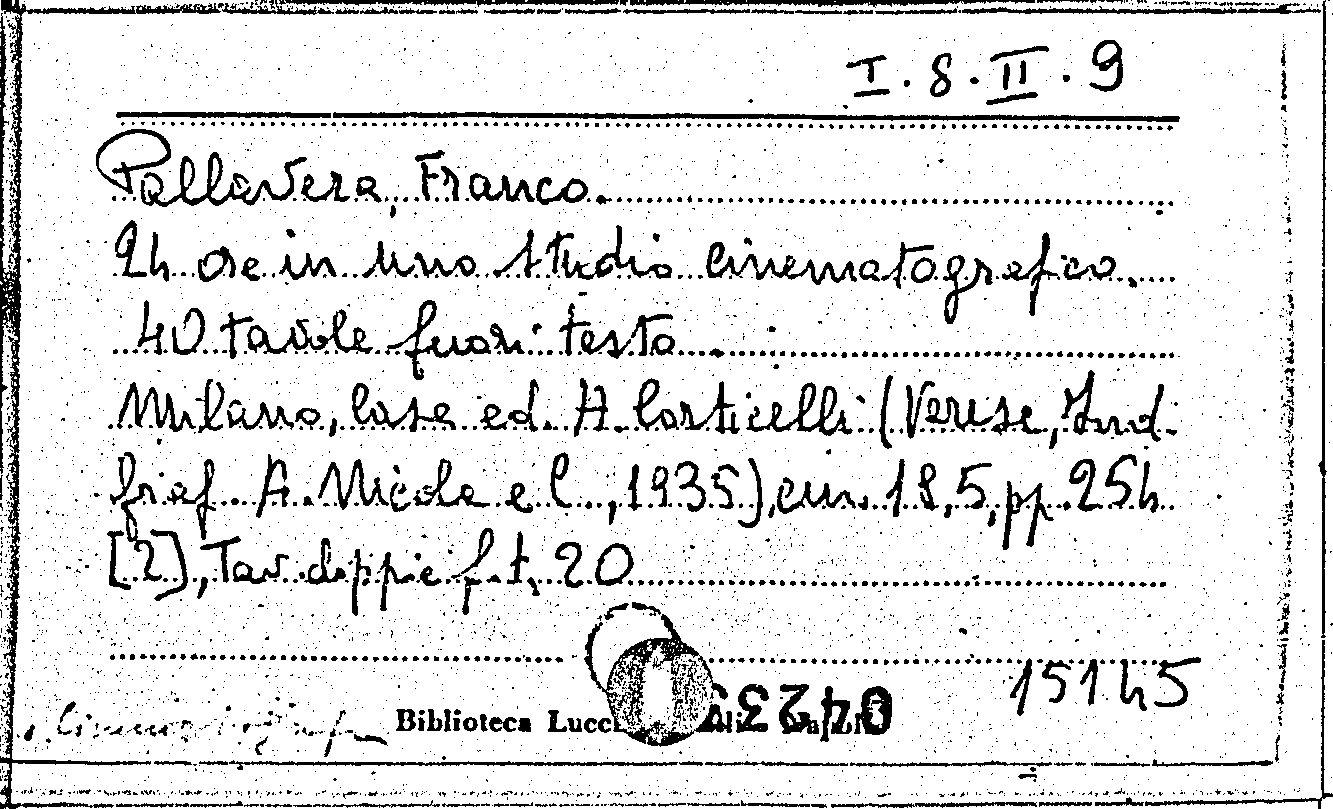 I.8.II.9
Pallavera, Franco.
24 ore in uno studio cinematografico.
40 tavole fuori testo.
Milano, Casa ed. A. Corticelli (Varese, Ind.
graf. A. Nicola e C., 1935), cm. 18,5, pp. 254
[2], Tav. doppie f.t. 20
15145
Biblioteca